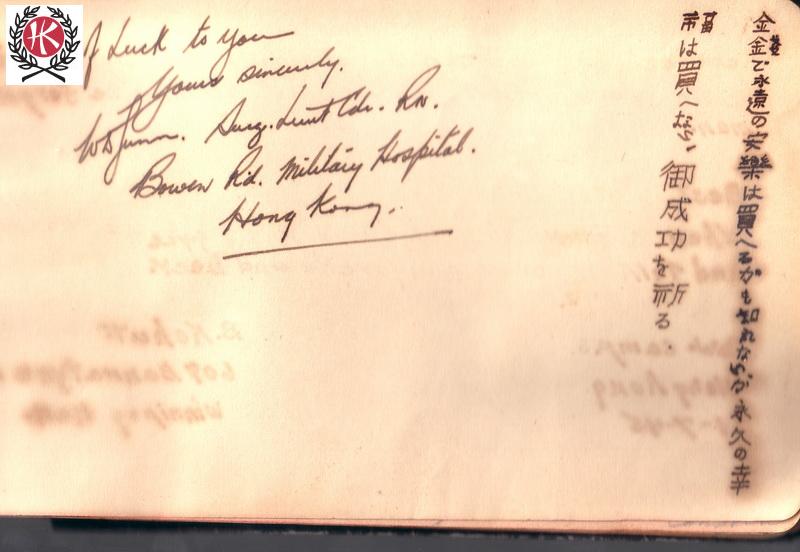 of Luck to you
Yours sincerely.
Surg. Lieut Cdr. RN.
Bowen Rd. Military Hospital.
Hong Kong.
金錢で永遠の安樂は買へるかも知れないが永久の幸
福は買へない、御成功を祈る
HK